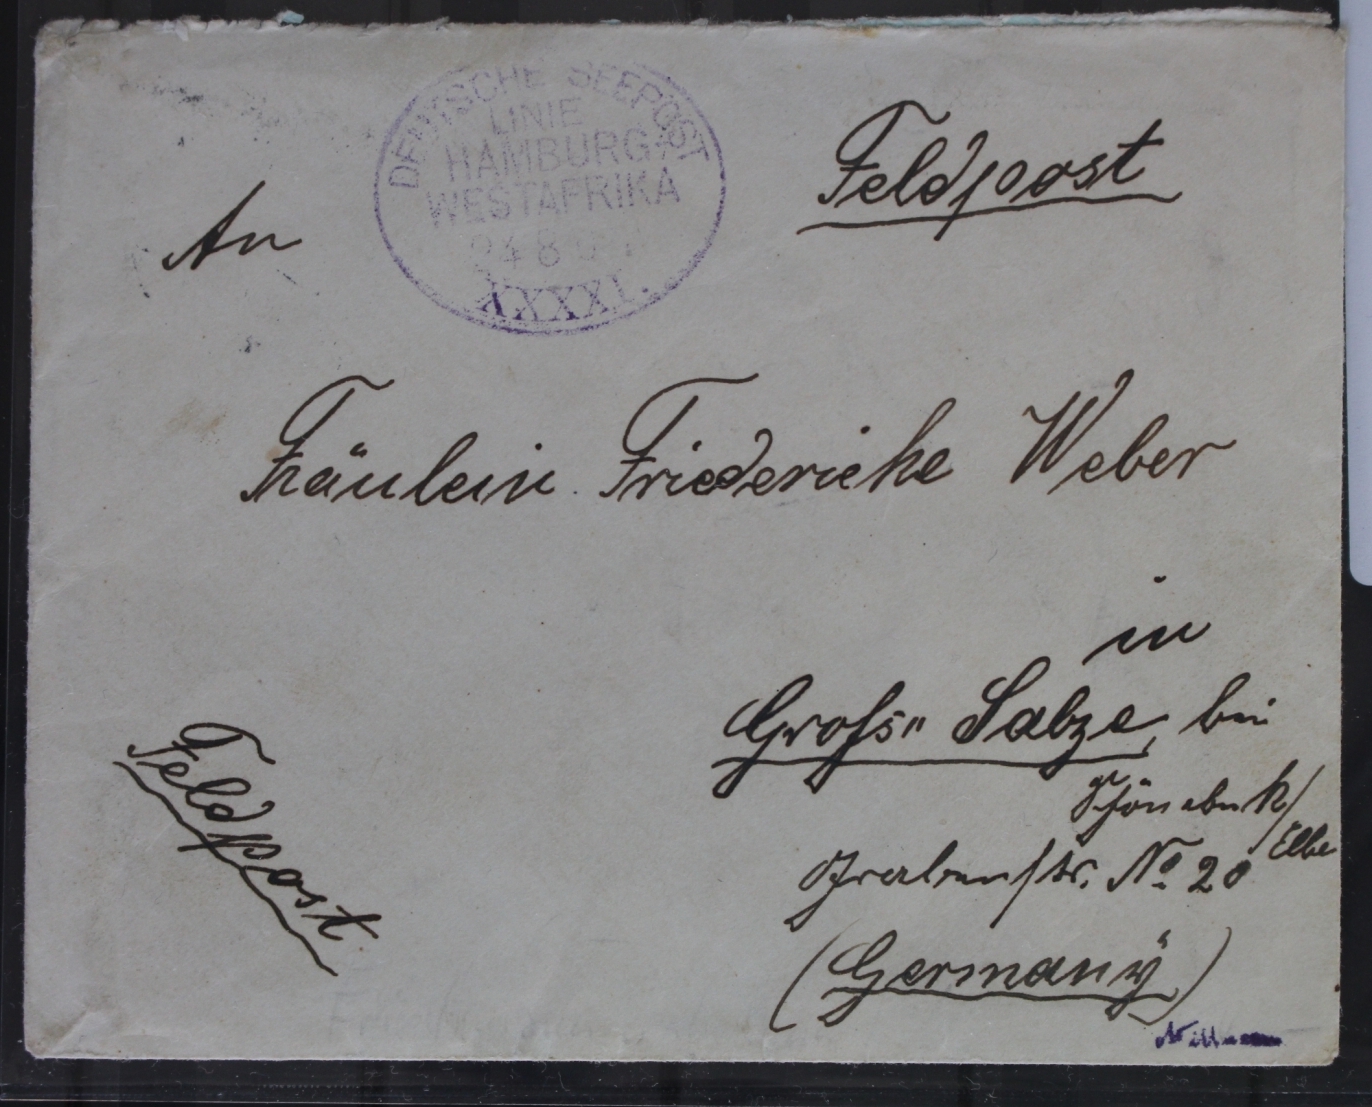 DEUTSCHE SEEPOST
LINIE
HAMBURG-
WESTAFRIKA
24 8
XXXXI.
Feldpost
An
Fräulein Friedericke Weber
in
Gross" Salze, bei
Schönebeck/
Elbe
No. 20
(Germanÿ)
Feldpost.